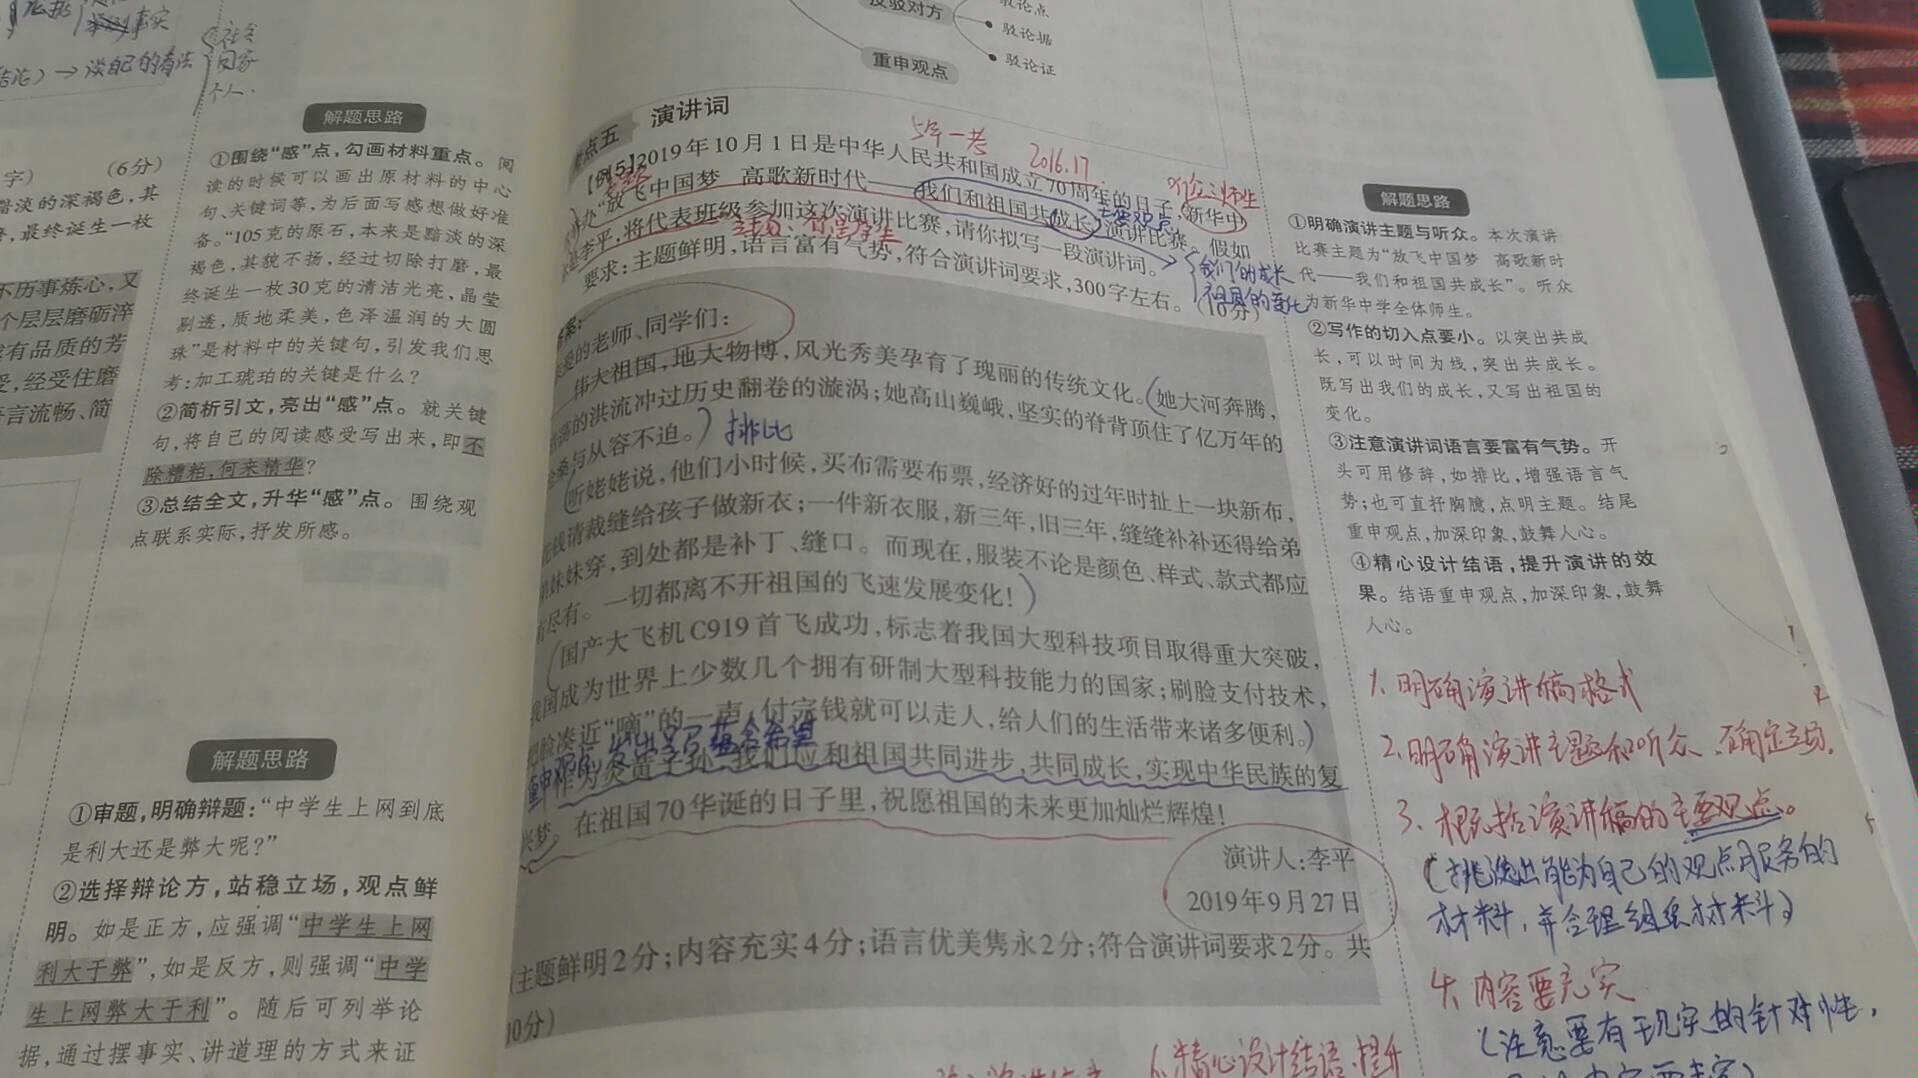 事实
社会
国家
个人.
→谈自己的看法
解题思路
(6分)
字)
①围绕“感”点，勾画材料重点。阅
读的时候可以画出原材料的中心
句、关键词等，为后面写感想做好准
备。“105克的原石，本来是黯淡的深
褐色，其貌不扬，经过切除打磨，最
终诞生一枚30克的清洁光亮，晶莹
剔透，质地柔美，色泽温润的大圆
珠”是材料中的关键句，引发我们思
考：加工琥珀的关键是什么？
②简析引文，亮出“感”点。就关键
句，将自己的阅读感受写出来，即不
除糟粕，何来精华？
③总结全文，升华“感”点。围绕观
点联系实际，抒发所感。
黯淡的深褐色，其
，最终诞生一枚
不历事炼心，又
个层层磨砺淬
有品质的芳
受，经受住磨
言流畅、简
解题思路
①审题，明确辩题：“中学生上网到底
是利大还是弊大呢？”
②选择辩论方，站稳立场，观点鲜
明。如是正方，应强调“中学生上网
利大于弊”，如是反方，则强调“中学
生上网弊大于利”。随后可列举论
据，通过摆事实、讲道理的方式来证
反驳对方
驳论点
驳论据
驳论证
重申观点
点五 演讲词
5年一考
2016.17.
听众：师生
【例5】2019年10月1日是中华人民共和国成立70周年的日子，新华中
办“放飞中国梦 高歌新时代——我们和祖国共成长”演讲比赛。假如
是李平，将代表班级参加这次演讲比赛，请你拟写一段演讲词。
要求：主题鲜明，语言富有气势，符合演讲词要求，300字左右。(10分)
主要观点
我们的成长
祖国的变化
答案：
的老师、同学们：
伟大祖国，地大物博，风光秀美孕育了瑰丽的传统文化。(她大河奔腾，
的洪流冲过历史翻卷的漩涡；她高山巍峨，坚实的脊背顶住了亿万年的
桑与从容不迫。) 排比
听姥姥说，他们小时候，买布需要布票，经济好的过年时扯上一块新布，
花钱请裁缝给孩子做新衣；一件新衣服，新三年，旧三年，缝缝补补还得给弟
妹妹穿，到处都是补丁、缝口。而现在，服装不论是颜色、样式、款式都应
有尽有。一切都离不开祖国的飞速发展变化！)
(国产大飞机C919首飞成功，标志着我国大型科技项目取得重大突破，
我国成为世界上少数几个拥有研制大型科技能力的国家；刷脸支付技术，
把脸凑近“嘀”的一声，付完钱就可以走人，给人们的生活带来诸多便利。)
重申观点，发出号召，蕴含希望
作为炎黄子孙，我们应和祖国共同进步，共同成长，实现中华民族的复
兴梦。在祖国70华诞的日子里，祝愿祖国的未来更加灿烂辉煌！
演讲人：李平
2019年9月27日
(主题鲜明2分；内容充实4分；语言优美隽永2分；符合演讲词要求2分。共
10分)
6.精心设计结语，提升
解题思路
①明确演讲主题与听众。本次演讲
比赛主题为“放飞中国梦 高歌新时
代——我们和祖国共成长”。听众
为新华中学全体师生。
②写作的切入点要小。以突出共成
长，可以时间为线，突出共成长。
既写出我们的成长，又写出祖国的
变化。
③注意演讲词语言要富有气势。开
头可用修辞，如排比，增强语言气
势；也可直抒胸臆，点明主题。结尾
重申观点，加深印象，鼓舞人心。
④精心设计结语，提升演讲的效
果。结语重申观点，加深印象，鼓舞
人心。
1.明确演讲稿格式
2.明确演讲主题和听众、确定立场。
3.概括演讲稿的主要观点。
(挑选出能为自己的观点服务的
材料，并合理组织材料)
4.内容要充实
(注意要有现实的针对性，